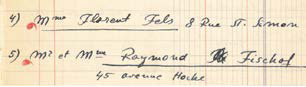 4) Mme Florent Fels 8 Rue St. Simon
5) Mr et Mme Raymond Fischof
45 avenue Hoche